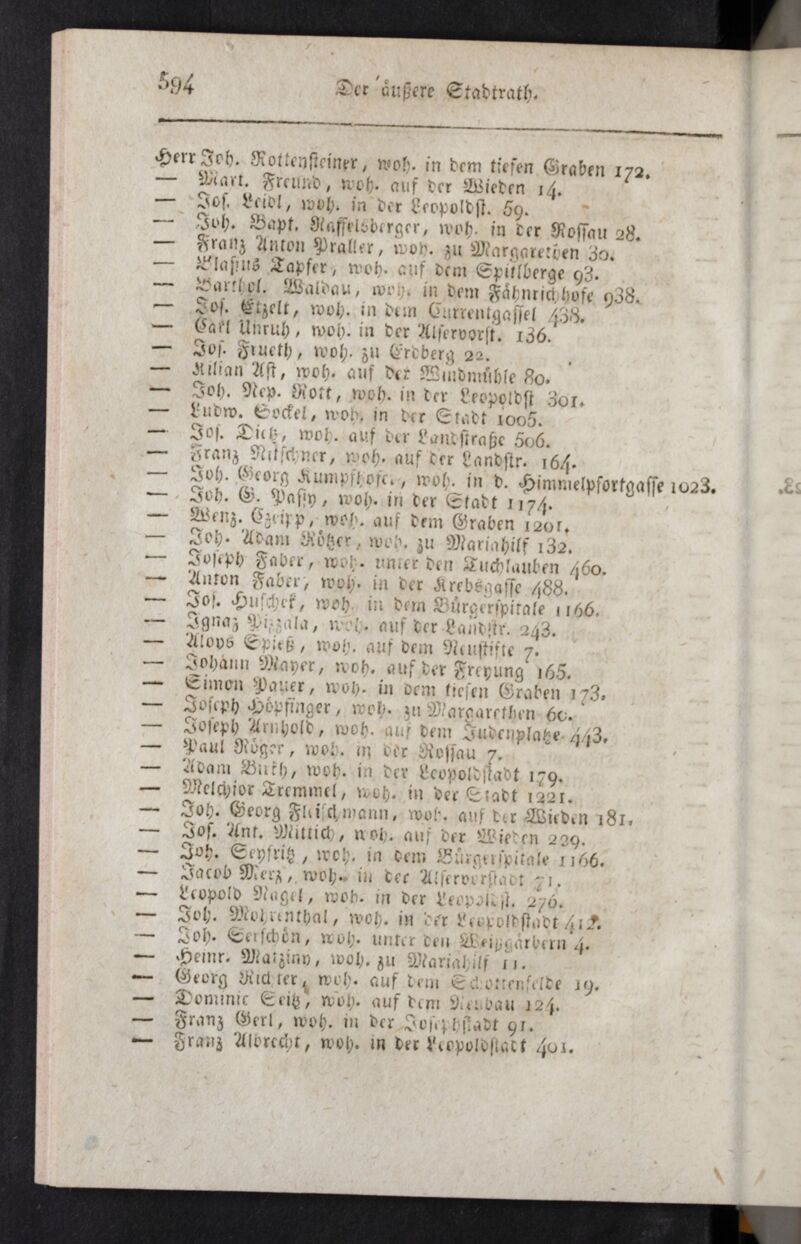 594 Der äußere Stadtrath.
Herr Joh. Rottensteiner, woh. in dem tiefen Graben 172.
— Mart. Freund, woh. auf der Wieden 14.
— Jos. Leidl, woh. in der Leopoldst. 59.
— Joh. Bapt. Raffelsberger, woh. in der Rossau 28.
— Franz Anton Praller, woh. zu Margarethen 30.
— Blasius Tapfer, woh. auf dem Spitlberge 93.
— Barthol. Waldau, woh. in dem Fähnrichhofe 938.
— Jos. Etzelt, woh. in dem Currentgassel 438.
— Carl Unruh, woh. in der Alservorst. 136.
— Jos. Frueth, woh. zu Erdberg 22.
— Kilian Ast, woh. auf der Windmühle 80.
— Joh. Nep. Rott, woh. in der Leopoldst 301.
— Ludw. Sockel, woh. in der Stadt 1005.
— Jos. Dietz, woh. auf der Landstraße 506.
— Franz Nitschner, woh. auf der Landstr. 164.
— Joh. Georg Kumpfhofer, woh. in d. Himmelpfortgasse 1023.
— Joh. G. Passy, woh. in der Stadt 1174.
— Wenz. Czeipp, woh. auf dem Graben 1201.
— Joh. Adam Rötzer, woh. zu Mariahilf 132.
— Joseph Faber, woh. unter den Tuchlauben 460.
— Anton Faber, woh. in der Krebsgasse 488.
— Jos. Huschek, woh. in dem Bürgerspitale 1166.
— Ignaz Pizzala, woh. auf der Landstr. 243.
— Aloys Spieß, woh. auf dem Neustifte 7.
— Johann Mayer, woh. auf der Freyung 165.
— Simon Pauer, woh. in dem tiefen Graben 173.
— Joseph Höpfinger, woh. zu Margarethen 60.
— Joseph Arnhold, woh. auf dem Judenplatze 443.
— Paul Röger, woh. in der Rossau 7.
— Adam Buth, woh. in der Leopoldstadt 179.
— Melchior Tremmel, woh. in der Stadt 1221.
— Joh. Georg Fleischmann, woh. auf der Wieden 181.
— Jos. Ant. Mittich, woh. auf der Wieden 229.
— Joh. Seyfritz, woh. in dem Bürgerspitale 1166.
— Jacob Merz, woh. in der Alservorstadt 71.
— Leopold Nagel, woh. in der Leopoldst. 276.
— Joh. Mohrenthal, woh. in der Leopoldstadt
— Joh. Serschön, woh. unter den Weißgärbern 4.
— Heinr. Matziny, woh. zu Mariahilf 11.
— Georg Richter, woh. auf dem Schottenfelde 19.
— Dominic Seitz, woh. auf dem Neubau 124.
— Franz Gerl, woh. in der Josephstadt 91.
— Franz Albrecht, woh. in der Leopoldstadt 401.